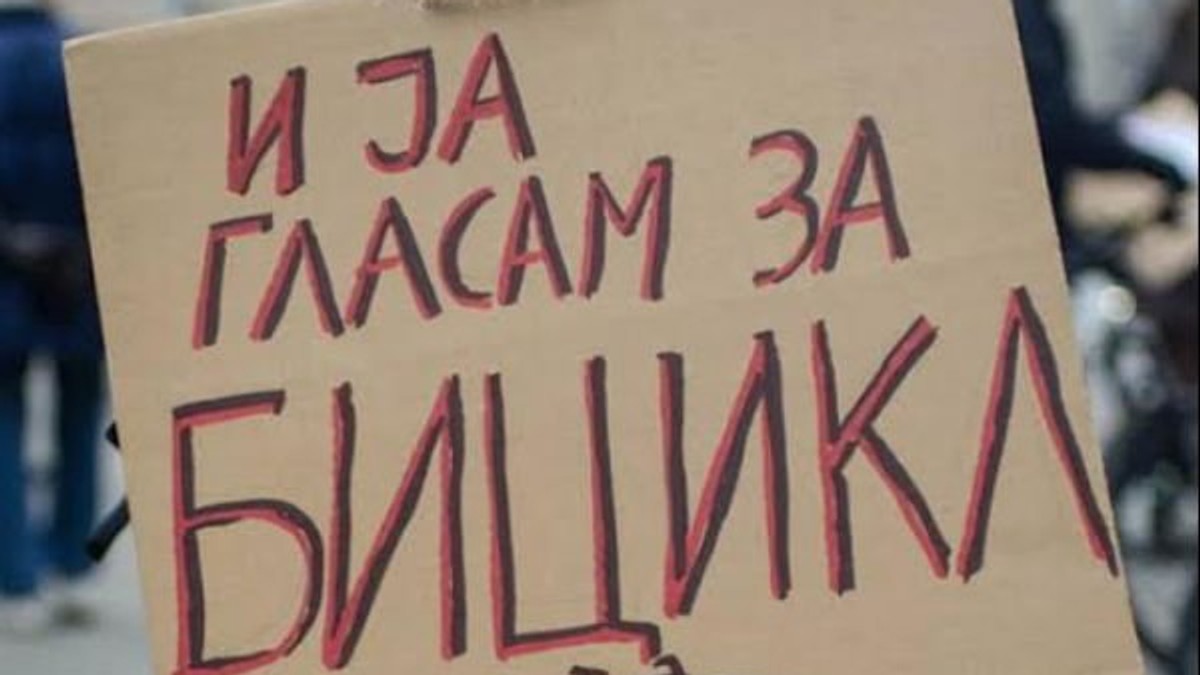 И ЈА
ГЛАСАМ ЗА
БИЦИКЛ